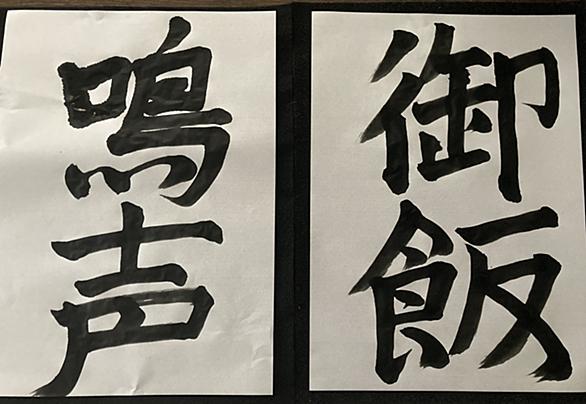 御飯
鳴声